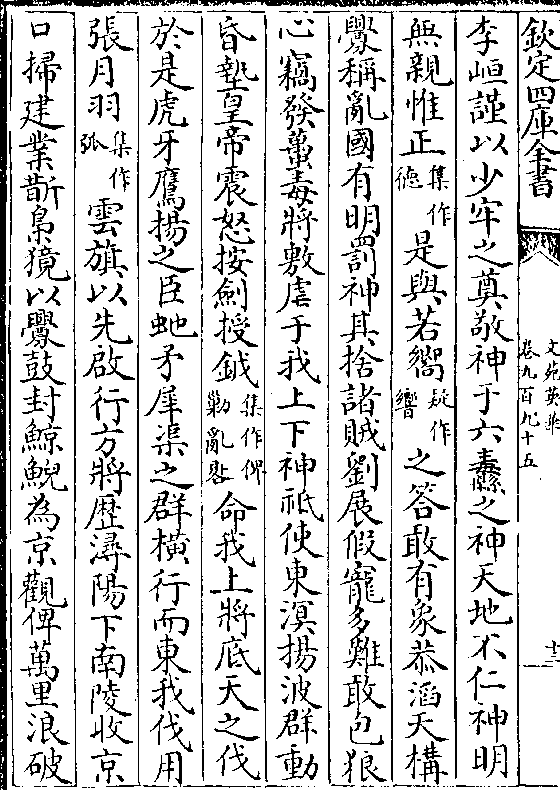 欽定四庫全書
文苑英華
卷九百九十五
十三
李峘謹以少牢之奠敬神于六纛之神天地不仁神明
無親惟正集作德是與若嚮疑作響之答敢有象恭滔天構
釁稱亂國有明罰神其捨諸賊劉展假寵多難敢包狼
心竊發蠆毒將敷虐于我上下神祗使東溟揚波群動
昏墊皇帝震怒按劍授鉞集作俾勦亂畧命我上將底天之伐
於是虎牙鷹揚之臣虵矛犀渠之群橫行而東我伐用
張月羽集作弧雲旗以先啟行方將歷潯陽下南陵收京
口掃建業斬梟獍以釁鼓封鯨鯢為京觀俾萬里浪破